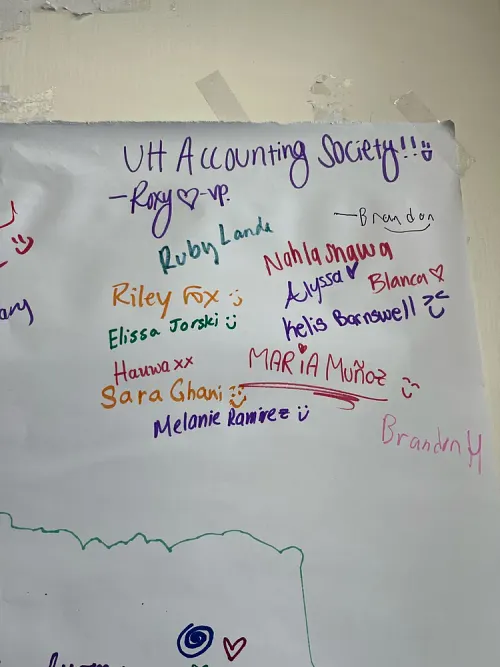 UH Accounting Society!!
-Roxy♡-VP.
-Brandon
Ruby Lande
Nahla Shawa
Alyssa
Blanca♡
Riley Fox
Kelis Barnswell
Elissa Jorski
Hauwa xx
MARiA Muñoz
Sara Ghani
Melanie Ramirez
Brandon Y